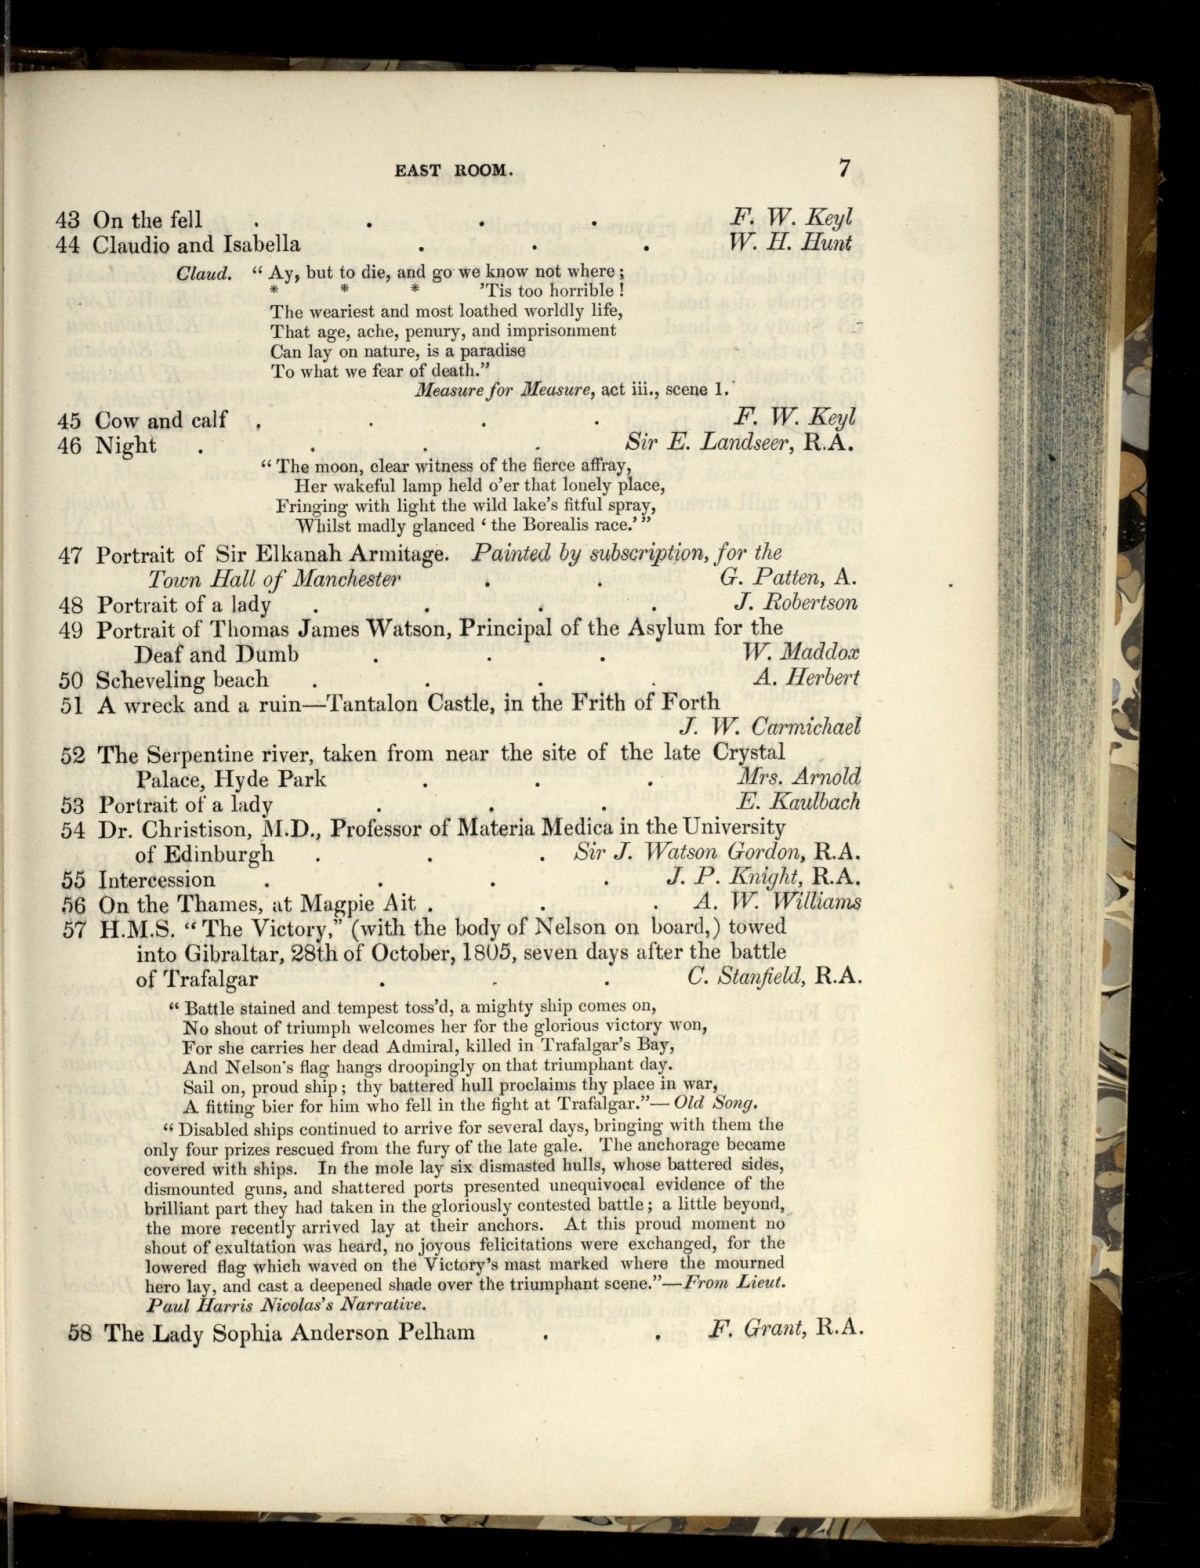 EAST ROOM. 7
43 On the fell . . . . F. W. Keyl
44 Claudio and Isabella . . . W. H. Hunt
Claud. “ Ay, but to die, and go we know not where ;
* * * ’Tis too horrible !
The weariest and most loathed worldly life,
That age, ache, penury, and imprisonment
Can lay on nature, is a paradise
To what we fear of death.”
Measure for Measure, act iii., scene 1.
45 Cow and calf . . . . F. W. Keyl
46 Night . . . . Sir E. Landseer, R.A.
“ The moon, clear witness of the fierce affray,
Her wakeful lamp held o’er that lonely place,
Fringing with light the wild lake’s fitful spray,
Whilst madly glanced ‘ the Borealis race.’ ”
47 Portrait of Sir Elkanah Armitage. Painted by subscription, for the
Town Hall of Manchester . . G. Patten, A.
48 Portrait of a lady . . . . J. Robertson
49 Portrait of Thomas James Watson, Principal of the Asylum for the
Deaf and Dumb . . . W. Maddox
50 Scheveling beach . . . . A. Herbert
51 A wreck and a ruin—Tantalon Castle, in the Frith of Forth
J. W. Carmichael
52 The Serpentine river, taken from near the site of the late Crystal
Palace, Hyde Park . . . Mrs. Arnold
53 Portrait of a lady . . . E. Kaulbach
54 Dr. Christison, M.D., Professor of Materia Medica in the University
of Edinburgh . . . Sir J. Watson Gordon, R.A.
55 Intercession . . . . J. P. Knight, R.A.
56 On the Thames, at Magpie Ait . . . A. W. Williams
57 H.M.S. “ The Victory,” (with the body of Nelson on board,) towed
into Gibraltar, 28th of October, 1805, seven days after the battle
of Trafalgar . . . C. Stanfield, R.A.
“ Battle stained and tempest toss’d, a mighty ship comes on,
No shout of triumph welcomes her for the glorious victory won,
For she carries her dead Admiral, killed in Trafalgar’s Bay,
And Nelson’s flag hangs droopingly on that triumphant day.
Sail on, proud ship ; thy battered hull proclaims thy place in war,
A fitting bier for him who fell in the fight at Trafalgar.”—Old Song.
“ Disabled ships continued to arrive for several days, bringing with them the
only four prizes rescued from the fury of the late gale. The anchorage became
covered with ships. In the mole lay six dismasted hulls, whose battered sides,
dismounted guns, and shattered ports presented unequivocal evidence of the
brilliant part they had taken in the gloriously contested battle ; a little beyond,
the more recently arrived lay at their anchors. At this proud moment no
shout of exultation was heard, no joyous felicitations were exchanged, for the
lowered flag which waved on the Victory’s mast marked where the mourned
hero lay, and cast a deepened shade over the triumphant scene.”—From Lieut.
Paul Harris Nicolas’s Narrative.
58 The Lady Sophia Anderson Pelham . . F. Grant, R.A.